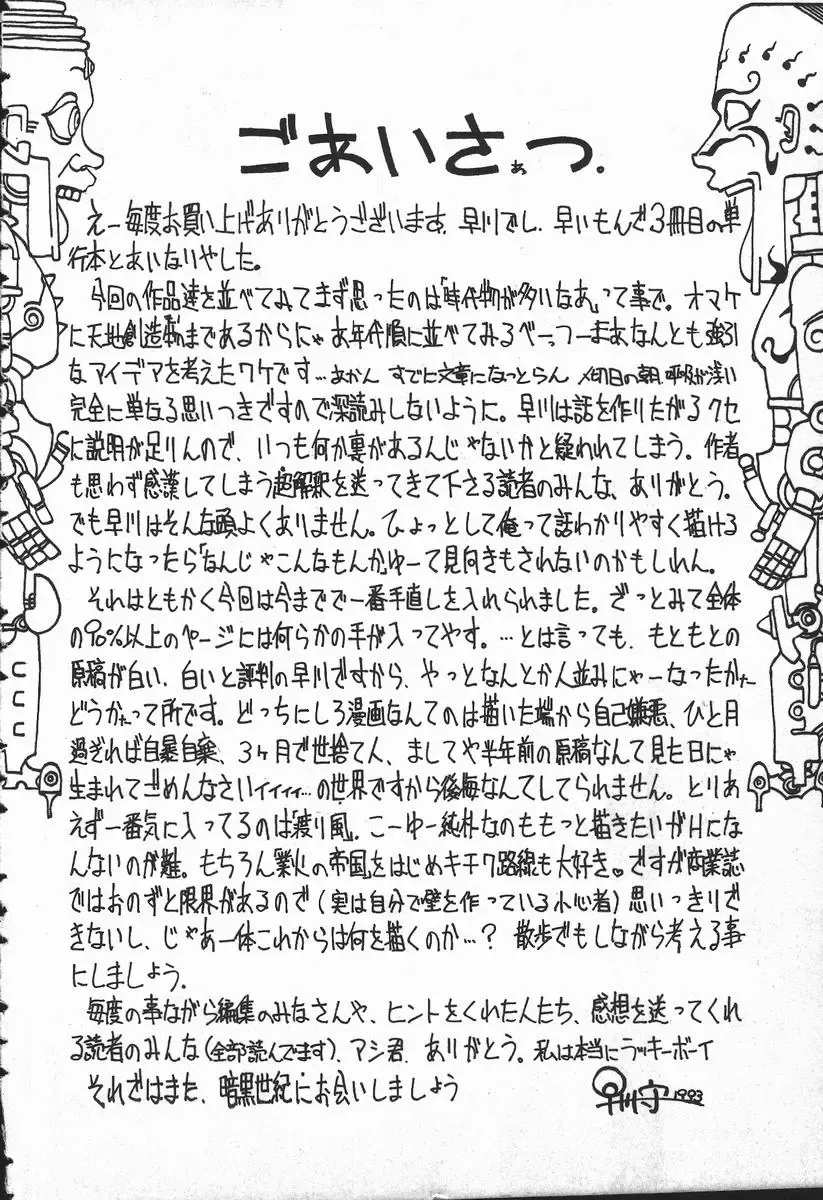 ごあいさぁつ.
えー毎度お買い上げありがとうございます。早川でし。早いもんで3冊目の単
行本とあいなりやした。
今回の作品達を並べてみてまず思ったのは「時代物が多いなあ」って事で。オマケ
に天地創造いまであるからにゃあ年代順に並べてみるべーっつーまあなんとも強引
なアイデアを考えたワケです…あかん すでに文章になっとらん 〆切日の朝 眠りが浅い
完全に単なる思いつきですので深読みしないように。早川は話を作りたがるクセ
に説明が足りんので、いつも何か裏があるんじゃないかと疑われてしまう。作者
も思わず感謝してしまう超解釈を送ってきて下さる読者のみんな、ありがとう。
でも早川はそんな頭よくありません。ひょっとして俺って話わかりやすく描ける
ようになったら「なんじゃこんなもんか」ゆーて見向きもされないのかもしれん。
それはともかく今回は今までで一番手直しを入れられました。ざっとみて全体
の90%以上のページには何らかの手が入ってやす。…とは言っても、もともとの
原稿が白い、白いと評判の早川ですから、やっとなんとか人並みにゃーなったかなー
どうかなって所です。どっちにしろ漫画なんてのは描いた端から自己嫌悪、ひと月
過ぎれば自暴自棄、3ヶ月で世捨て人、ましてや半年前の原稿なんて見た日にゃ
生まれてごめんなさいィィィィ…の世界ですから後悔なんてしてられません。とりあ
えず一番気に入ってるのは「渡り風」。こーゆー純朴なのももっと描きたいがHにな
んないのが難。もちろん「業火の帝国」をはじめキチク路線も大好き♥ですが商業誌
ではおのずと限界があるので(実は自分で壁を作っている小心者)思いっきりで
きないし、じゃあ一体これからは何を描くのか…? 散歩でもしながら考える事
にしましょう。
毎度の事ながら編集のみなさんや、ヒントをくれた人たち、感想を送ってくれ
る読者のみんな(全部読んでます)、アシ君、ありがとう。私は本当にラッキーボーイ
それではまた、暗黒世紀にお会いしましょう
早川守 1993